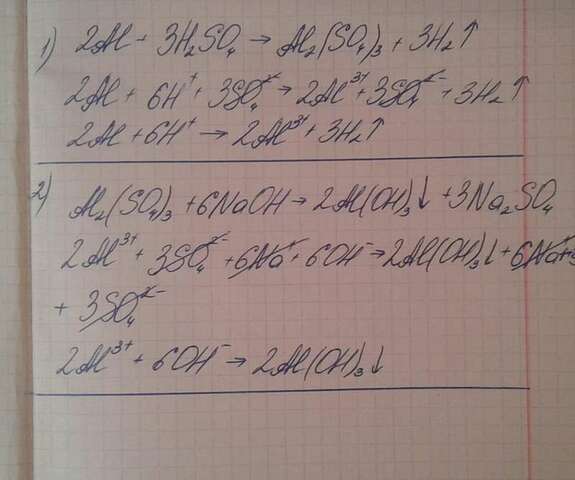 1) 2Al + 3H₂SO₄ → Al₂(SO₄)₃ + 3H₂↑
2Al + 6H⁺ + 3SO₄²⁻ → 2Al³⁺ + 3SO₄²⁻ + 3H₂↑
2Al + 6H⁺ → 2Al³⁺ + 3H₂↑
2) Al₂(SO₄)₃ + 6NaOH → 2Al(OH)₃↓ + 3Na₂SO₄
2Al³⁺ + 3SO₄²⁻ + 6Na⁺ + 6OH⁻ → 2Al(OH)₃↓ + 6Na⁺
+ 3SO₄²⁻
2Al³⁺ + 6OH⁻ → 2Al(OH)₃↓